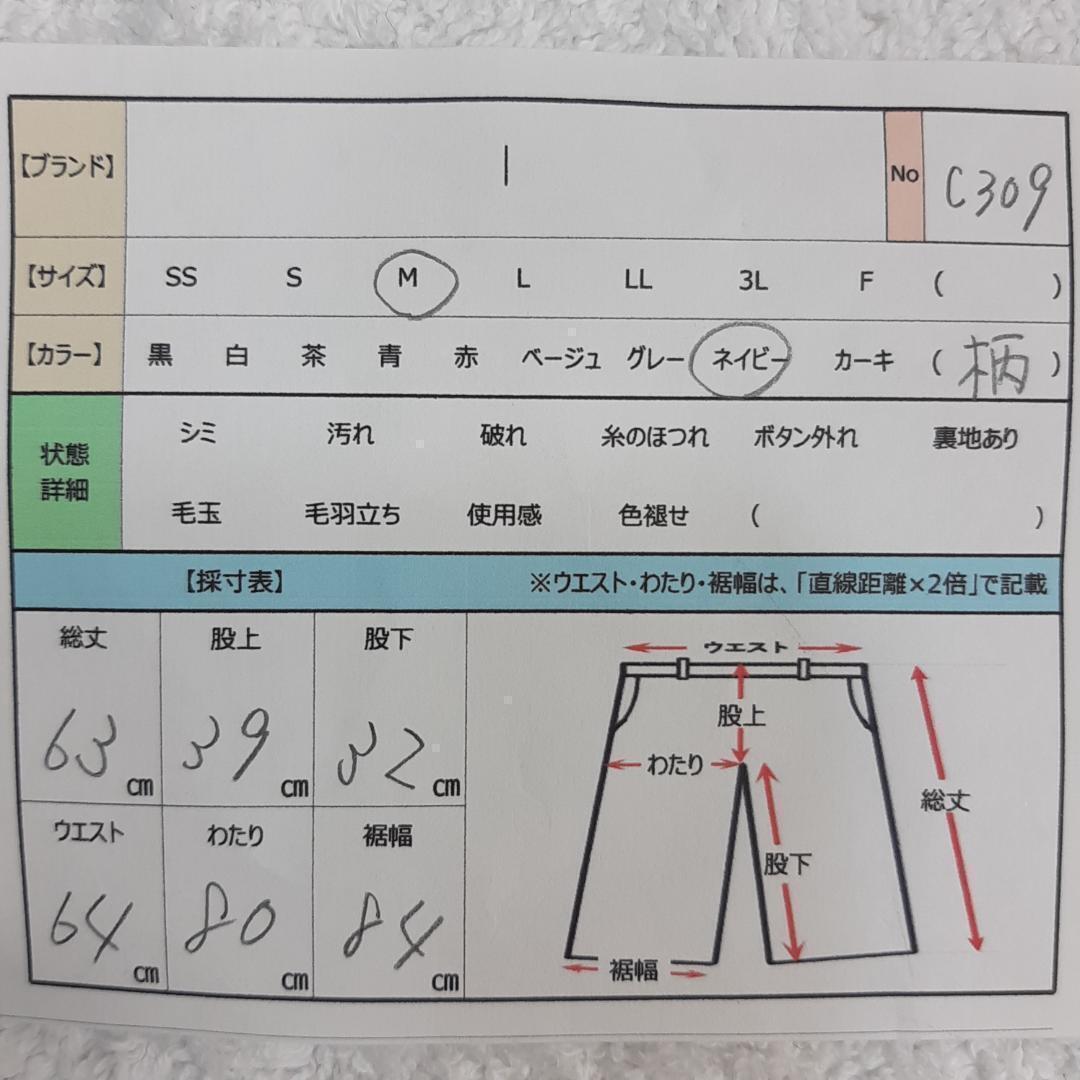 【ブランド】 | No C309
【サイズ】 SS S M L LL 3L F ( )
【カラー】 黒 白 茶 青 赤 ベージュ グレー ネイビー カーキ ( 柄 )
状態詳細
シミ 汚れ 破れ 糸のほつれ ボタン外れ 裏地あり
毛玉 毛羽立ち 使用感 色褪せ ( )
【採寸表】 ※ウエスト・わたり・裾幅は、「直線距離×2倍」で記載
総丈 股上 股下
63 cm 39 cm 32 cm
ウエスト わたり 裾幅
64 cm 80 cm 84 cm
ウエスト
股上
わたり
総丈
股下
裾幅